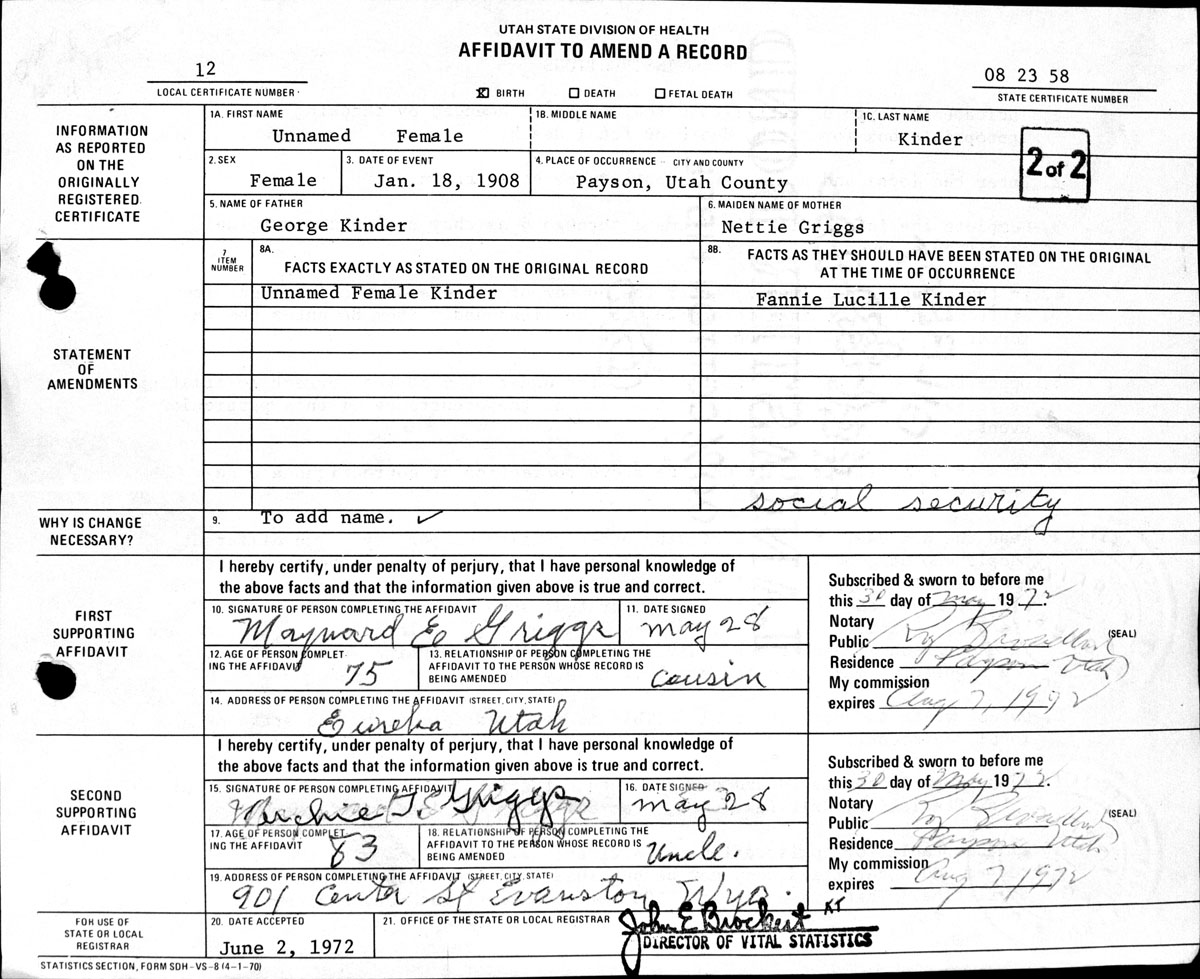 UTAH STATE DIVISION OF HEALTH
AFFIDAVIT TO AMEND A RECORD
12
LOCAL CERTIFICATE NUMBER
BIRTH DEATH FETAL DEATH
08 23 58
STATE CERTIFICATE NUMBER
INFORMATION
AS REPORTED
ON THE
ORIGINALLY
REGISTERED
CERTIFICATE
1A. FIRST NAME
Unnamed Female
1B. MIDDLE NAME
1C. LAST NAME
Kinder
2 of 2
2. SEX
Female
3. DATE OF EVENT
Jan. 18, 1908
4. PLACE OF OCCURRENCE - CITY AND COUNTY
Payson, Utah County
5. NAME OF FATHER
George Kinder
6. MAIDEN NAME OF MOTHER
Nettie Griggs
STATEMENT
OF
AMENDMENTS
7
ITEM
NUMBER
8A.
FACTS EXACTLY AS STATED ON THE ORIGINAL RECORD
8B.
FACTS AS THEY SHOULD HAVE BEEN STATED ON THE ORIGINAL
AT THE TIME OF OCCURRENCE
Unnamed Female Kinder
Fannie Lucille Kinder
social security
WHY IS CHANGE
NECESSARY?
9.
To add name. ✓
FIRST
SUPPORTING
AFFIDAVIT
I hereby certify, under penalty of perjury, that I have personal knowledge of
the above facts and that the information given above is true and correct.
10. SIGNATURE OF PERSON COMPLETING THE AFFIDAVIT
Maynard E Griggs
11. DATE SIGNED
May 28
12. AGE OF PERSON COMPLET-
ING THE AFFIDAVIT
75
13. RELATIONSHIP OF PERSON COMPLETING THE
AFFIDAVIT TO THE PERSON WHOSE RECORD IS
BEING AMENDED
cousin
14. ADDRESS OF PERSON COMPLETING THE AFFIDAVIT (STREET, CITY, STATE)
Eureka Utah
Subscribed & sworn to before me
this 30 day of May 1972.
Notary
Public Roy Broadbent (SEAL)
Residence Payson Utah
My commission
expires Aug 7, 1972
SECOND
SUPPORTING
AFFIDAVIT
I hereby certify, under penalty of perjury, that I have personal knowledge of
the above facts and that the information given above is true and correct.
15. SIGNATURE OF PERSON COMPLETING THE AFFIDAVIT
Griggs
16. DATE SIGNED
May 28
17. AGE OF PERSON COMPLET-
ING THE AFFIDAVIT
83
18. RELATIONSHIP OF PERSON COMPLETING THE
AFFIDAVIT TO THE PERSON WHOSE RECORD IS
BEING AMENDED
Uncle.
19. ADDRESS OF PERSON COMPLETING THE AFFIDAVIT (STREET, CITY, STATE)
901 Center St Evanston Wyo.
Subscribed & sworn to before me
this 30 day of May 1972
Notary
Public Roy Broadbent (SEAL)
Residence Payson Utah
My commission
expires Aug 7 1972
FOR USE OF
STATE OR LOCAL
REGISTRAR
20. DATE ACCEPTED
June 2, 1972
21. OFFICE OF THE STATE OR LOCAL REGISTRAR
John E Brockert KT
DIRECTOR OF VITAL STATISTICS
STATISTICS SECTION, FORM SDH-VS-8 (4-1-70)